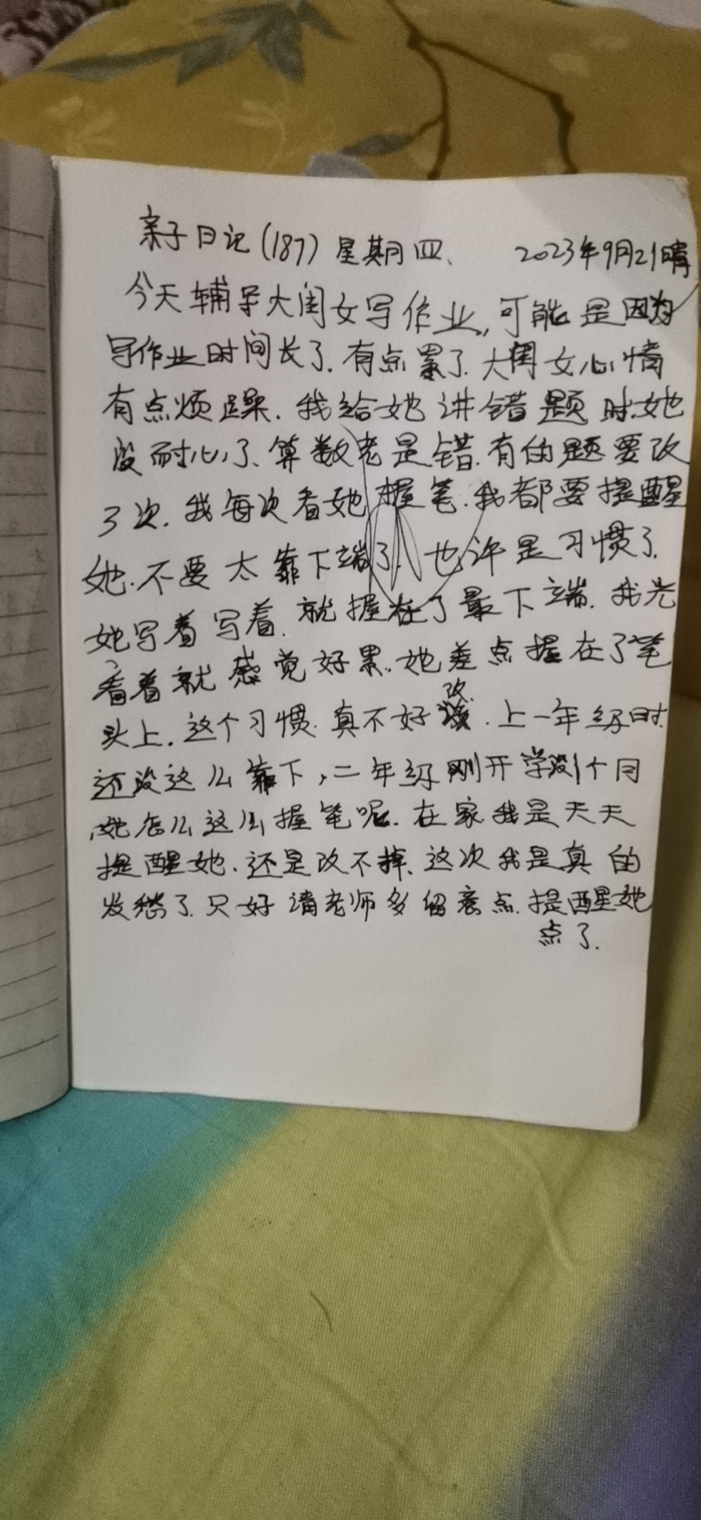 亲子日记(187) 星期四、 2023年9月21晴
今天辅导大闺女写作业,可能是因为
写作业时间长了.有点累了.大闺女心情
有点烦躁.我给她讲错题时.她
没耐心了、算数老是错.有的题要改
3次.我每次看她握笔.我都要提醒
她.不要太靠下端了.也许是习惯了.
她写着写着.就握在了最下端.我光
看着就感觉好累.她差点握在了笔
头上.这个习惯.真不好改.上一年级时.
还没这么靠下,二年级刚开学没1个月
她怎么这么握笔呢.在家我是天天
提醒她.还是改不掉.这次我是真的
发愁了.只好请老师多留意点.提醒她
点了.